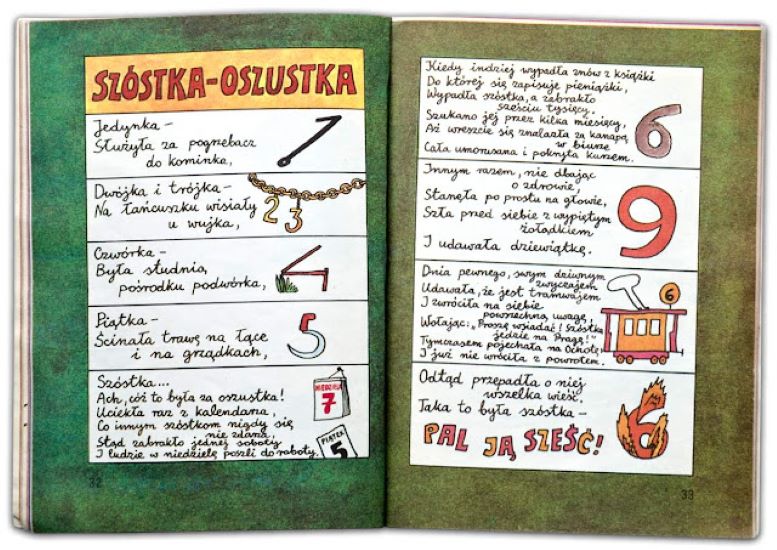 SZÓSTKA-OSZUSTKA
Jedynka –
Służyła za pogrzebacz
do kominka,
Dwójka i trójka –
Na łańcuszku wisiały
u wujka,
2 3
Czwórka –
Była studnią
pośrodku podwórka,
Piątka –
Ścinała trawę na łące
i na grządkach,
5
Szóstka...
Ach, cóż to była za oszustka!
Uciekła raz z kalendarza,
Co innym szóstkom nigdy się
nie zdarza,
Stąd zabrakło jednej soboty
I ludzie w niedzielę poszli do roboty.
NIEDZIELA
7
PIĄTEK
5
32
Kiedy indziej wypadła znów z książki
Do której się zapisuje pieniążki,
Wypadła szóstka, a zabrakło
sześciu tysięcy.
Szukano jej przez kilka miesięcy,
Aż wreszcie się znalazła za kanapą
w biurze
Cała umorusana i pokryta kurzem.
6
Innym razem, nie dbając
o zdrowie,
Stanęła po prostu na głowie,
Szła przed siebie z wypiętym
żołądkiem
I udawała dziewiątkę.
9
Dnia pewnego, swym dziwnym
zwyczajem
Udawała, że jest tramwajem
I zwróciła na siebie
powszechną uwagę,
Wołając: „Proszę wsiadać! Szóstka
jedzie na Pragę!"
Tymczasem pojechała na Ochotę
I już nie wróciła z powrotem.
6
Odtąd przepadła o niej
wszelka wieść.
Taka to była szóstka –
PAL JĄ SZEŚĆ!
6
33